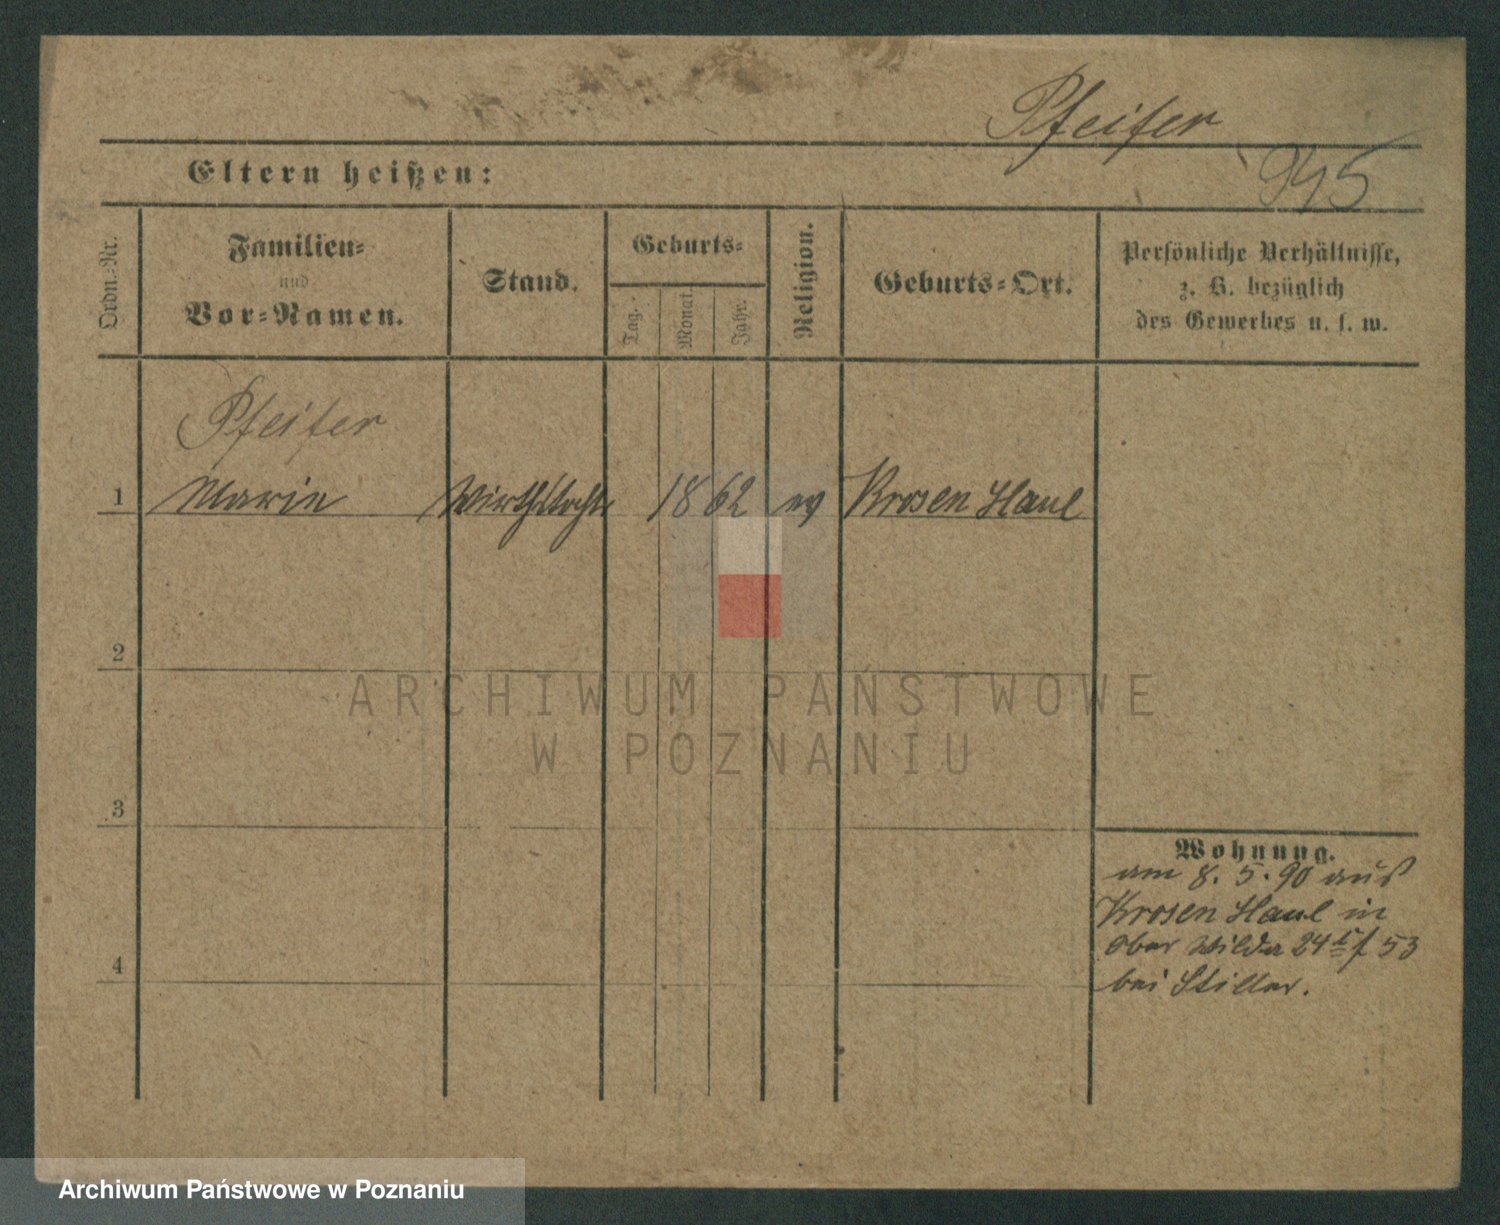 Pfeifer
945
Eltern heißen:
Ordn.-Nr.
Familien-
und
Vor-Namen.
Stand.
Geburts-
Tag.
Monat.
Jahr.
Religion.
Geburts-Ort.
Persönliche Verhältnisse,
z. B. bezüglich
des Gewerbes u. s. w.
Pfeifer
1 Marie Wirthstochter 1862 ev Krosen Haul
2
ARCHIWUM PAŃSTWOWE
W POZNANIU
3
Wohnung.
am 8. 5. 90 aus
Krosen Haul in
Ober Wilda 24 53
bei Stiller.
4
Archiwum Państwowe w Poznaniu